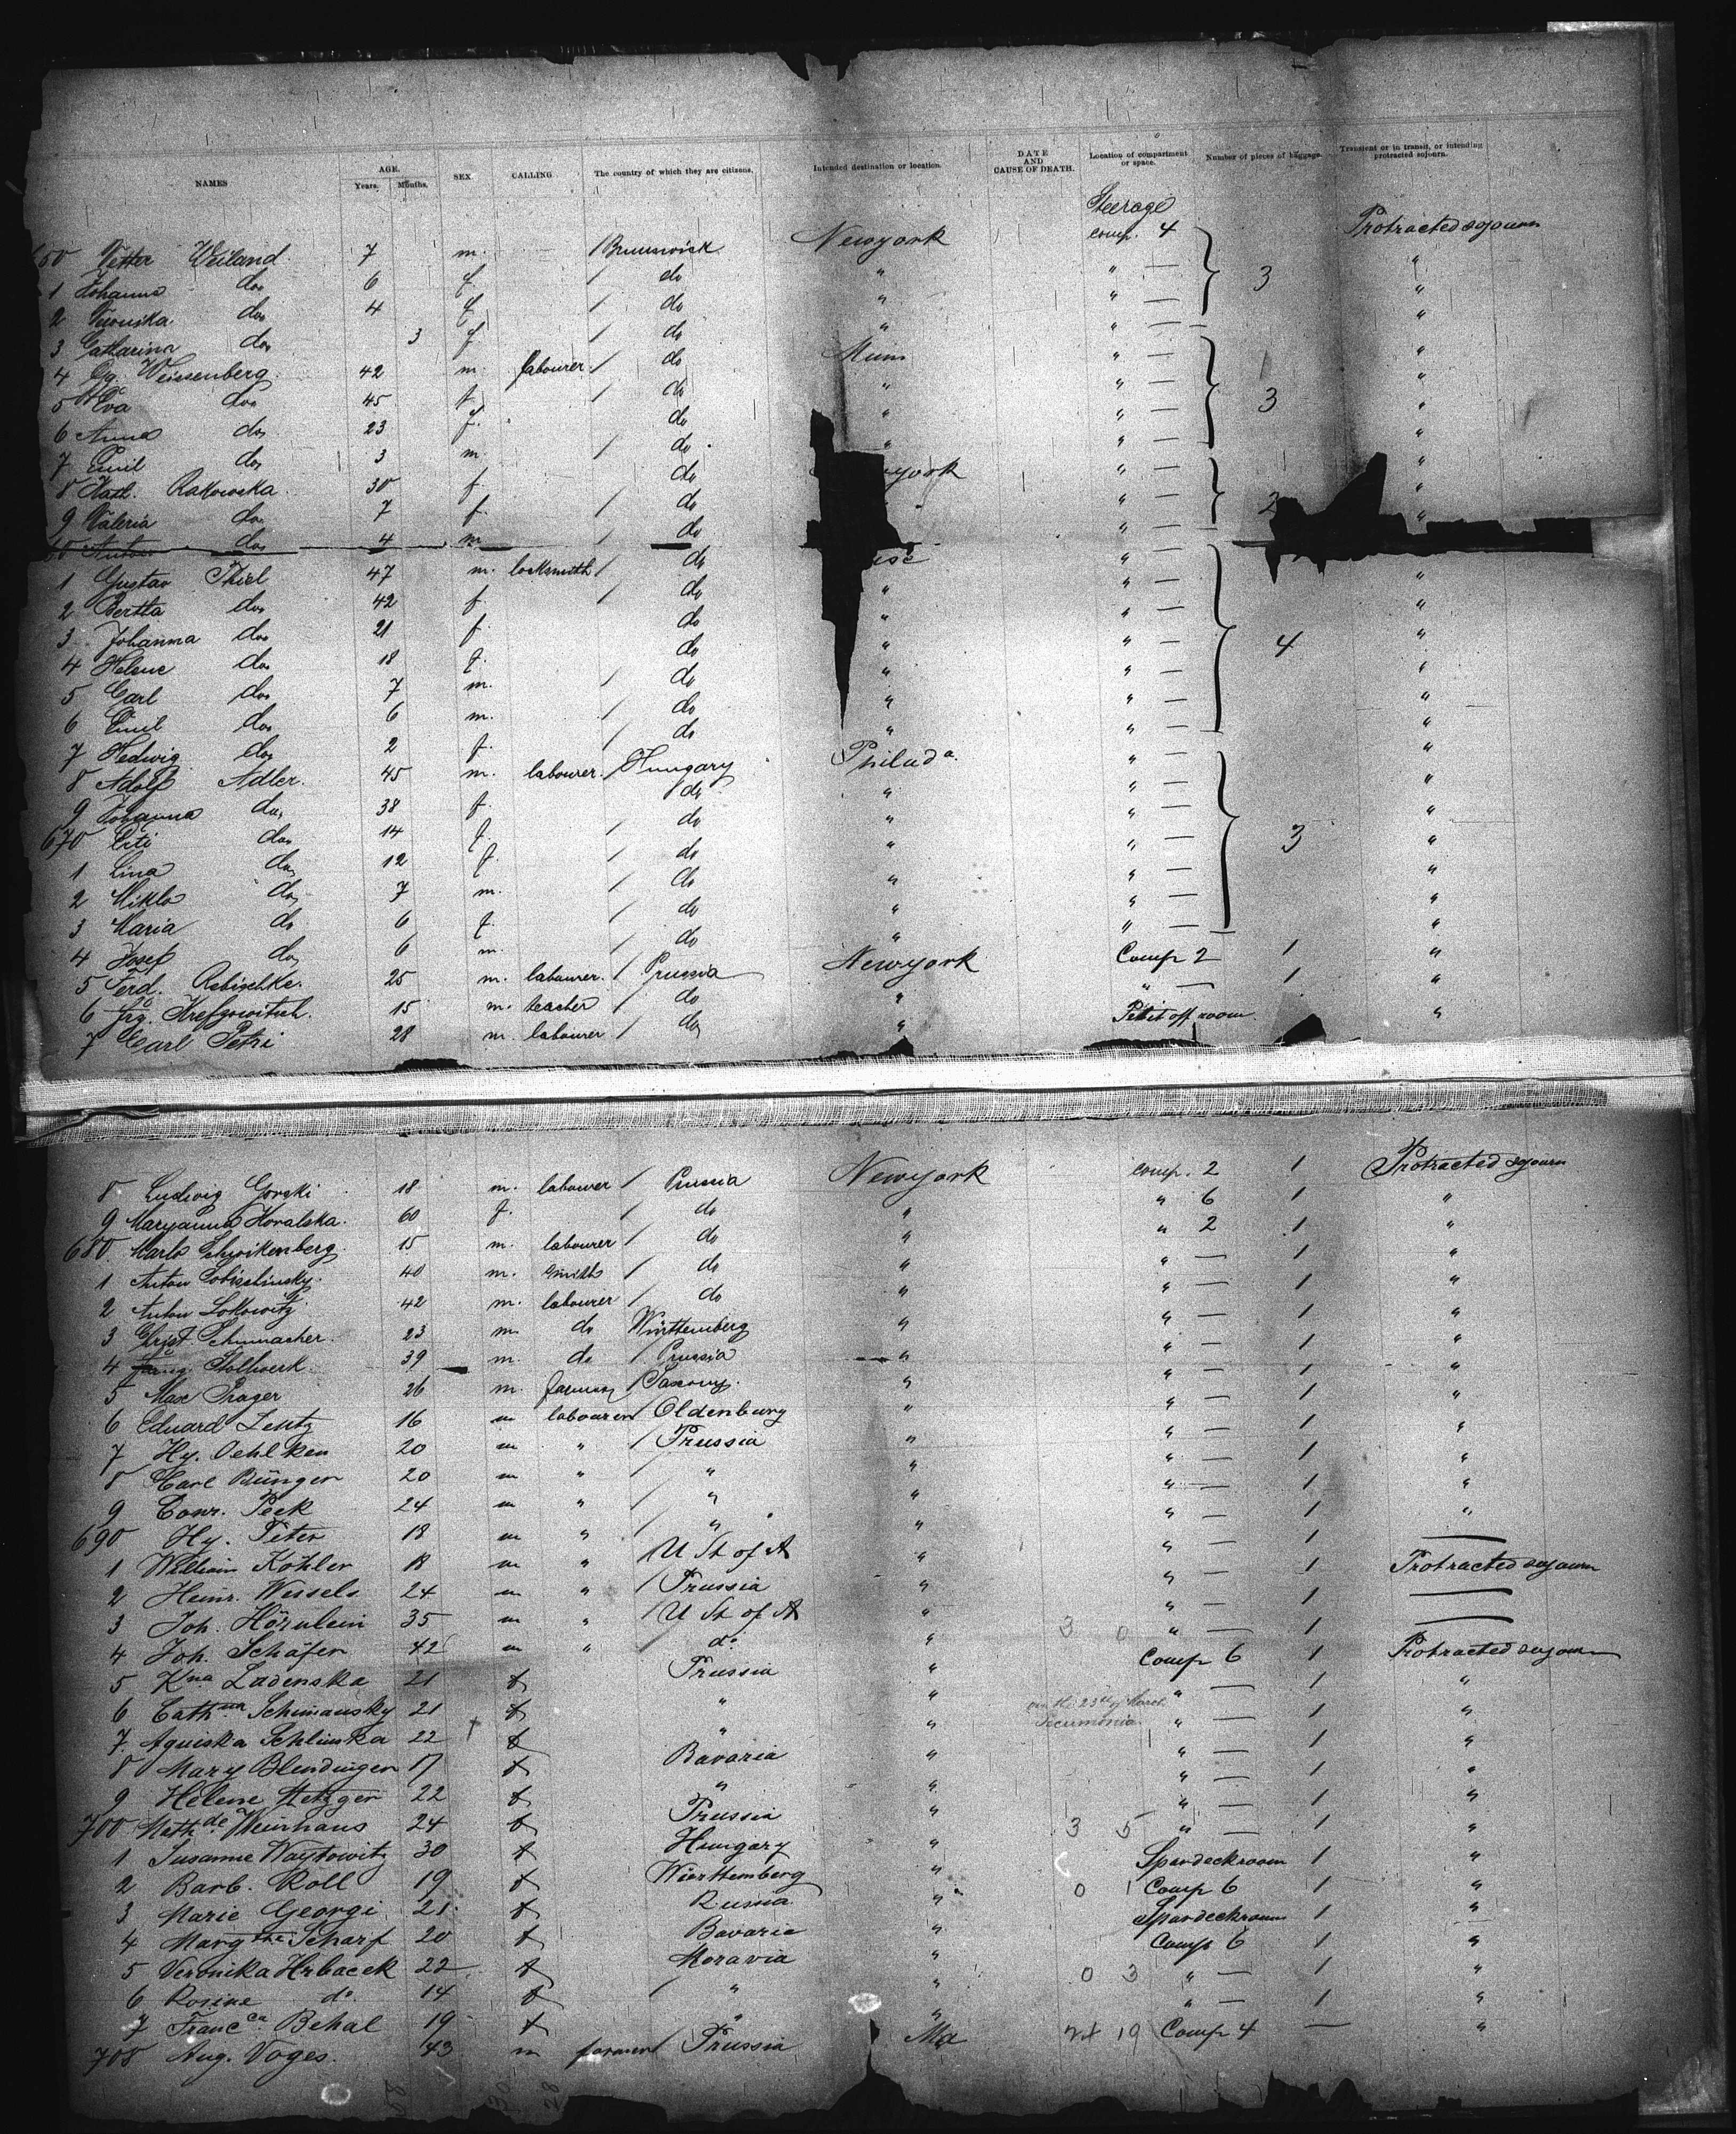 NAMES AGE. Years. Months. SEX. CALLING The country of which they are citizens. Intended destination or location. DATE AND CAUSE OF DEATH. Location of compartment or space. Number of pieces of baggage. Transient or in transit, or intending protracted sojourn.
Steerage
650 Vetter Weiland 7 m. / Brunswick Newyork comp. 4 Protracted sojourn
1 Johanna do 6 f. / do " " — 3 "
2 Veronika do 4 f. / do " " — "
3 Catharina do 3 f / do " " — "
4 Weissenberg. 42 m. labourer / do " — 1 "
5 Eva do 45 f. / do " " — "
6 Anna do 23 f. do " " — 3 "
7 Emil do 3 m. / do " " — "
8 Kath. Rakowska 30 f. do york " — "
9 Valeria do 7 f. / do " — 2 "
60 Anton do 4 m / do " —
1 Gustav Thiel 47 m. locksmith / do " — "
2 Bertha do 42 f. / do " " — "
3 Johanna do 21 f. do " " — "
4 Helene do 18 f. do " " — 4 "
5 Carl do 7 m. / do " " — "
6 Emil do 6 m. / do " " — "
7 Hedwig do 2 f. / do " " — "
8 Adolf Adler. 45 m. labourer. / Hungary Philada. " — "
9 Johanna do 38 f. / do " " — "
670 Citi do 14 f. / do " " — 3 "
1 Lina do 12 f. / do " " — "
2 Miklo do 7 m. / do " " — "
3 Maria do 6 f. / do " " — "
4 Josef do 6 m. / do " " — "
5 Ferd. Rebischke. 25 m. labourer. / Prussia Newyork Comp 2 1 "
6 Krefzowitsch. 15 m. teacher / do " " — 1 "
7 Carl Petri 28 m. labourer / do " Petit off room "
8 Ludwig Gorski 18 m. labourer / Prussia Newyork comp. 2 1 Protracted sojourn
9 Maryanna Kovalska. 60 f. / do " " 6 1 "
680 Marlo Schwikenberg 15 m. labourer / do " " 2 1 "
1 Anton Sobischinsky. 40 m. smith / do " " — 1 "
2 Anton Lokowitz 42 m. labourer / do " " — 1 "
3 Christ. Schumacher. 23 m do Württemberg " " — 1 "
4 Stollwerk. 39 m. do / Prussia " " — 1 "
5 Max Prager 26 m. farmer / Saxony. " " — 1 "
6 Eduard Lentz 16 m labourer / Oldenburg " " — 1 "
7 Hy. Oehlken 20 m " / Prussia " " — 1 "
8 Carl Bünger 20 m " / " " " — 1 "
9 Conr. Peck 24 m " / " " " — 1 "
690 Hy. Peter 18 m " / " " " — 1 "
1 William Köhler 18 m " / U St of A " " — 1 —
2 Heinr. Wessels 24 m " / Prussia " " — 1 Protracted sojourn
3 Joh. Hörnlein 35 m " / U St of A " " — 1 —
4 Joh. Schäfer 42 m " do " 3 0 " — 1 —
5 Kna Ladenska 21 f Prussia " Comp 6 1 Protracted sojourn
6 Cathna Schimansky 21 f " " " — 1 "
7. Agniska Schlinska 22 † f " " on the 23d of March Pneumonia " — 1 "
8 Mary Blendinger 17 f Bavaria " " — 1 "
9 Helene Metzger 22 f " " " — 1 "
700 Mathde Weinhaus 24 f Prussia " 3 5 " — 1 "
1 Susanne Waytowitz 30 f Hungary " Spardeckroom 1 "
2 Barb. Roll 19 f Württemberg " 0 1 Comp 6 1 "
3 Marie Georgi 21 f Russia " Spardeckroom 1 "
4 Margthe Scharf 20 f Bavaria " Comp 6 1 "
5 Veronika Hrbacek 22 f Moravia " 0 3 " — 1 "
6 Rosine do. 14 f / " " " — 1 "
7 Francca Behal 19 f " "
708 Aug. Voges. 43 m farmer / Prussia Ma 24 19 Comp 4 — "